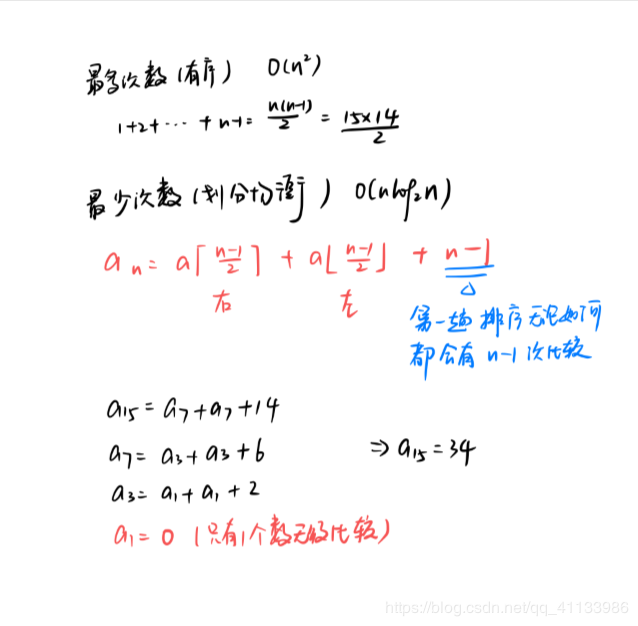 最多次数(有序) O(n²)
1+2+⋯+n-1= n(n-1)/2 = 15×14/2
最少次数(划分均匀) O(nlog₂n)
aₙ= a⌈n-1/2⌉ + a⌊n-1/2⌋ + n-1
右 左
第一趟排序无论如何
都会有 n-1 次比较
a₁₅=a₇+a₇+14
a₇= a₃+a₃+6 ⇒ a₁₅=34
a₃= a₁+a₁+2
a₁= 0 (只有1个数无须比较)
https://blog.csdn.net/qq_41133986